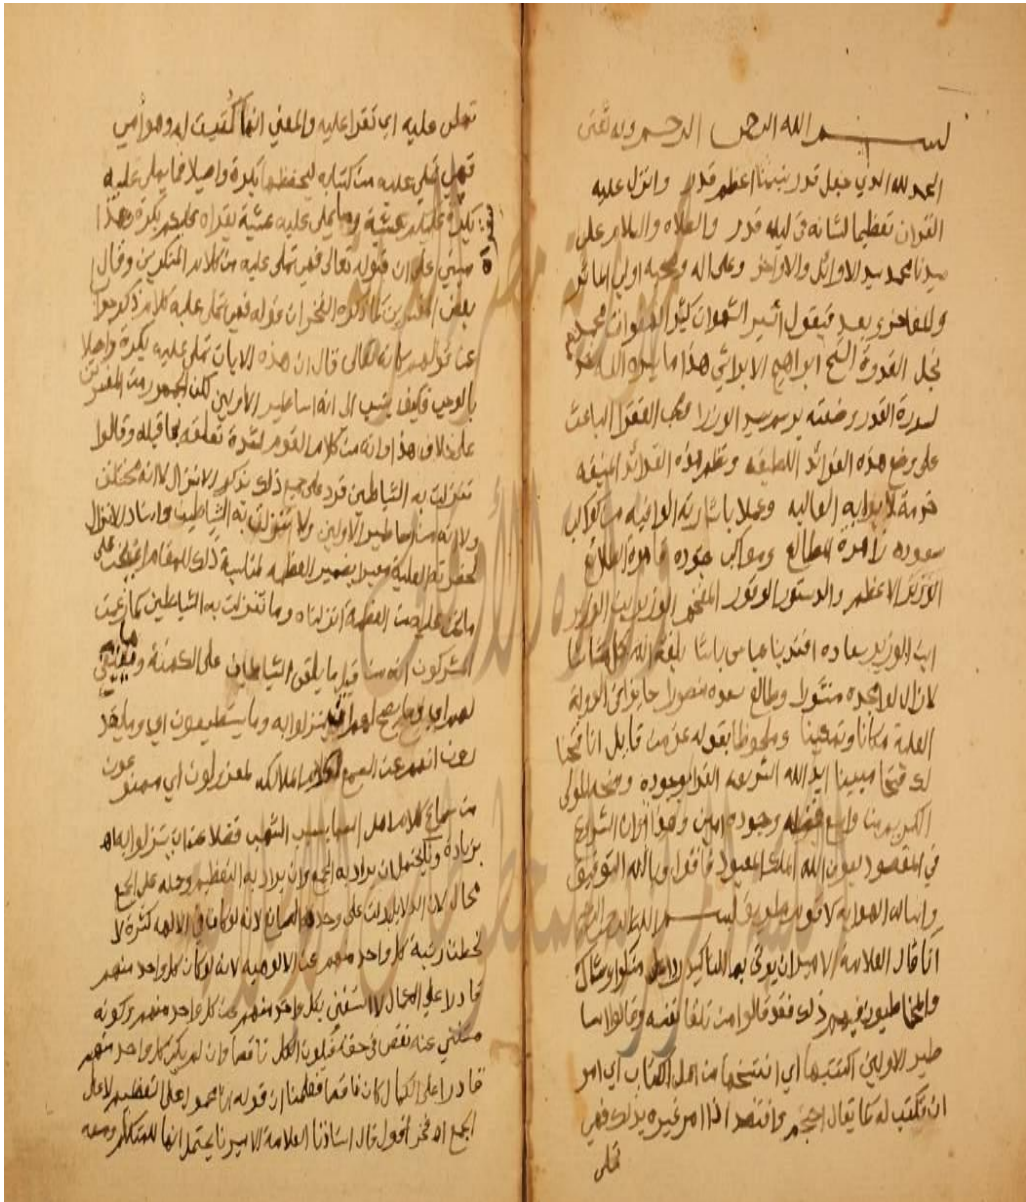 بسم الله الرحمن الرحيم وبه ثقتي
الحمد لله الذي جعل قدر نبينا اعظم قدر وانزل عليه
القران تعظيما لشانه في ليلة قدر والصلاه والسلام على
سيدنا محمد سيد الاوائل والاواخر وعلى اله وصحبه اولي الماثر
والمفاخر وبعد فيقول اسير الشهوات كثير الهفوات محمد
نجل القدوة الشيخ ابراهيم الابراشي هذا ما يسره الله
لسورة القدر وضعته برسم سيد الوزرا محب الفقرا الباعث
على وضع هذه الفوائد اللطيفه ونظم هذه الفرائد المنيفه
خدمة لابوابه العاليه وعملا باشارته الوافيه من كواكب
سعوده زاهرة المطالع ومواكب جوده
الاعظم والدستور الوقور المفخم الوزير بن الوزير
ابن الوزير سعاده افندينا عباس باشا بلغه الله كل ما شا
لا زال لوا مجده منشورا وطالع سعده منصورا حايزا من
مكانا وتمكينا وملحوظا بقوله عز من قايل انا فتحنا
لك فتحا مبينا ايد الله الشريعه الغرا بوجوده ومنحه المولى
الكريم من واسع فضله وجوده امين وهذا اوان الشروع
في المقصود بعون الله الملك المعبود فاقول وبالله التوفيق
واساله الهدايه لاقوم طريق بسم الله الرحمن الرحيم
انا قال العلامة الامير ان يوتى بها للتاكيد ردا على منكر او شاك
والمخاطبون فيهم ذلك فقد قالوا من تلقا نفسه وقالوا اسا
طير الاولين اكتتبها اي انتسخها من اهل الكتاب اي امر
ان تكتب له كما يقال احتجم وافتصد اذا امر غيره بذلك فهي
تملى
تملى عليه اي تقرا عليه والمعنى انها كتبت له وهو امي
فهي تملى عليه من كتابه ليحفظها بكرة واصيلا فما يملى عليه
بكرة عليكم عشية وما يملى عليه عشية يقراه عليكم بكرة وهذا
مبني على ان قوله تعالى فهي تملى عليه من كلام المنكرين وقال
بعض المفسرين كما ذكره الفخر ان قوله فهي تملى عليه كلام ذكر جوابا
عن قولهم كانه تعالى قال ان هذه الايات تملى عليه بكرة واصيلا
بالوحي فكيف ينسب الى انه اساطير الاولين لكن الجمهور من المفسرين
على خلاف هذا وانه من كلام القوم لشدة تعلقه بما قبله وقالوا
تنزلت به الشياطين فرد على جميع ذلك بذكر الانزال لا انه مختلق
ولا انه من اساطير الاولين ولا تنزلت به الشياطين واسناد الانزال
لحضرته العلية معبرا بضمير العظمه لمناسبة ذلك المقام
ما نحن عليه من العظمة انزلناه وما تنزلت به الشياطين كما زعمت
المشركون انه من قبيل ما يلقى الشياطين على الكهنة وما ينبغي
لهم اي وما يصح لهم ان يتنزلوا به وما يستطيعون اي وما يقد
رون انهم عن السمع لكلام الملائكه لمعزولون اي ممنوعون
من سماع كلام اهل السما بسبب الشهب فضلا عن ان يتنزلوا به اه
بزيادة ويحتمل ان يراد به الجمع وان يراد به التعظيم وحمله على الجمع
محال لان الدلايل دلت على وحدة الصانع لانه لو كان في الالهه كثرة لا
نحطت رتبة كل واحد منهم عن الالوهيه لانه لو كان كل واحد منهم
قادرا على الكمال لاستغنى بكل واحد منهم عن كل واحد منهم وكونه
مستغنى عنه نقص في حقه فيكون الكل ناقصا وان لم يكن كل واحد منهم
قادرا على الكمال كان ناقصا فعلمنا ان قوله انا محمول على التعظيم لا على
الجمع اه فخر اقول قال استاذنا العلامة الامير نا يحتمل انها للمتكلم ومعه